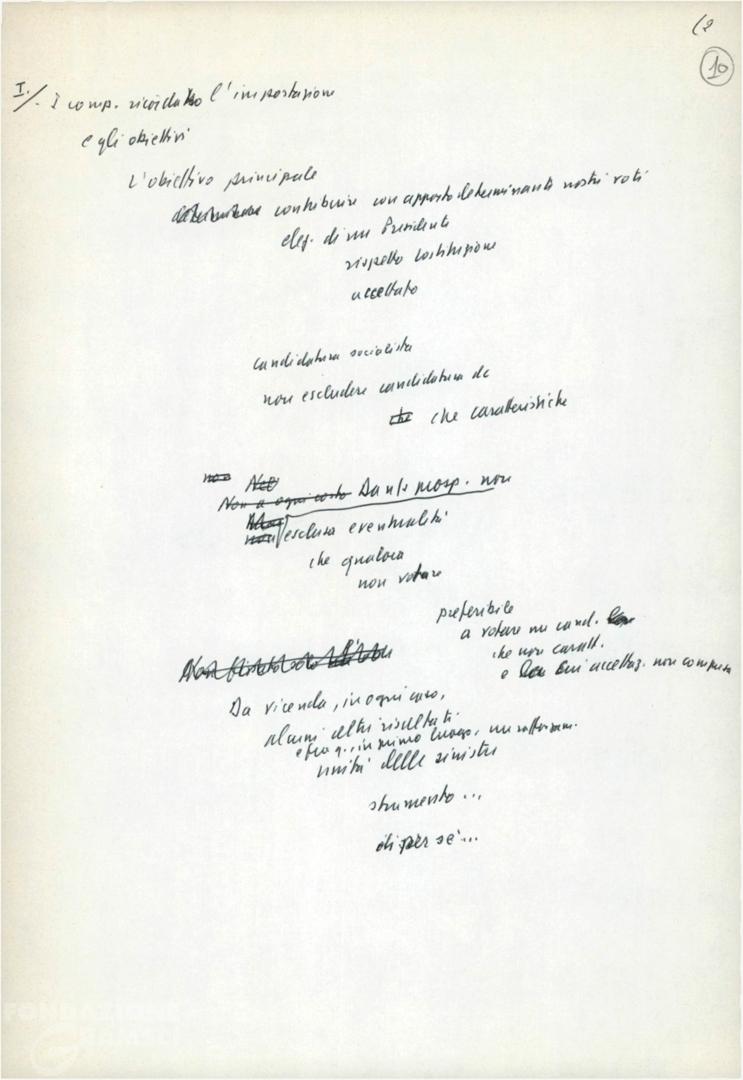 (2
10
I./. I comp. ricordano l'impostazione
e gli obiettivi
L'obiettivo principale
contribuire con apporto determinante nostri voti
elez. di un Presidente
rispetto Costituzione
accettato
candidatura socialista
non escludere candidatura dc
che che caratteristiche
non No
Non a ogni costo Da ns prosp. non
non esclusa eventualità
che qualora
non votare
preferibile
a votare un cand.
che non caratt.
e cui accettaz. non compresa
Da vicenda, in ogni caso,
alcuni altri risultati
e fra q., in primo luogo, un rafforzam.
unità delle sinistre
strumento...
di per sé...
FONDAZIONE
GRAMSCI